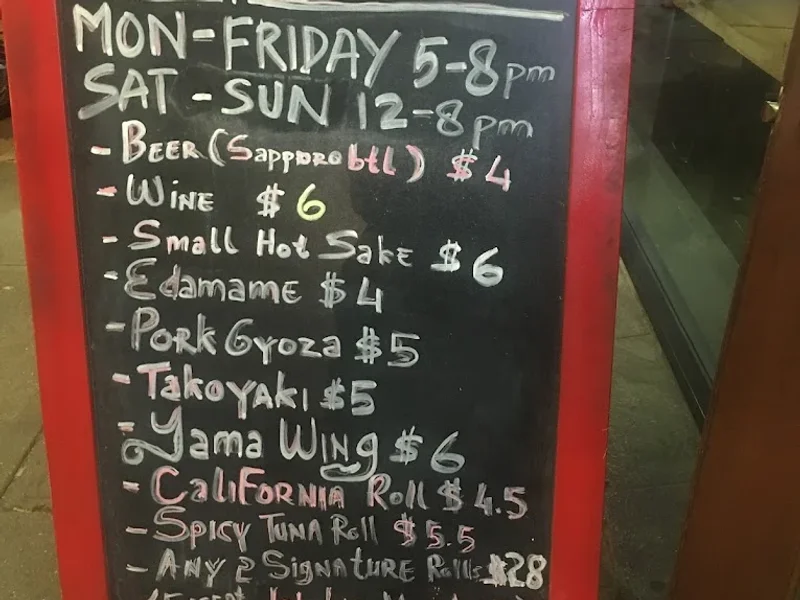 MON-FRIDAY 5-8pm
SAT - SUN 12-8pm
- BEER (Sapporo btl) $4
- WINE $6
- Small Hot Sake $6
- Edamame $4
- Pork Gyoza $5
- TakoYaki $5
- Yama Wing $6
- CaliFORNIA Roll $4.5
- SPICY TUNA Roll $5.5
- ANY 2 SIGNATURE Rolls $28